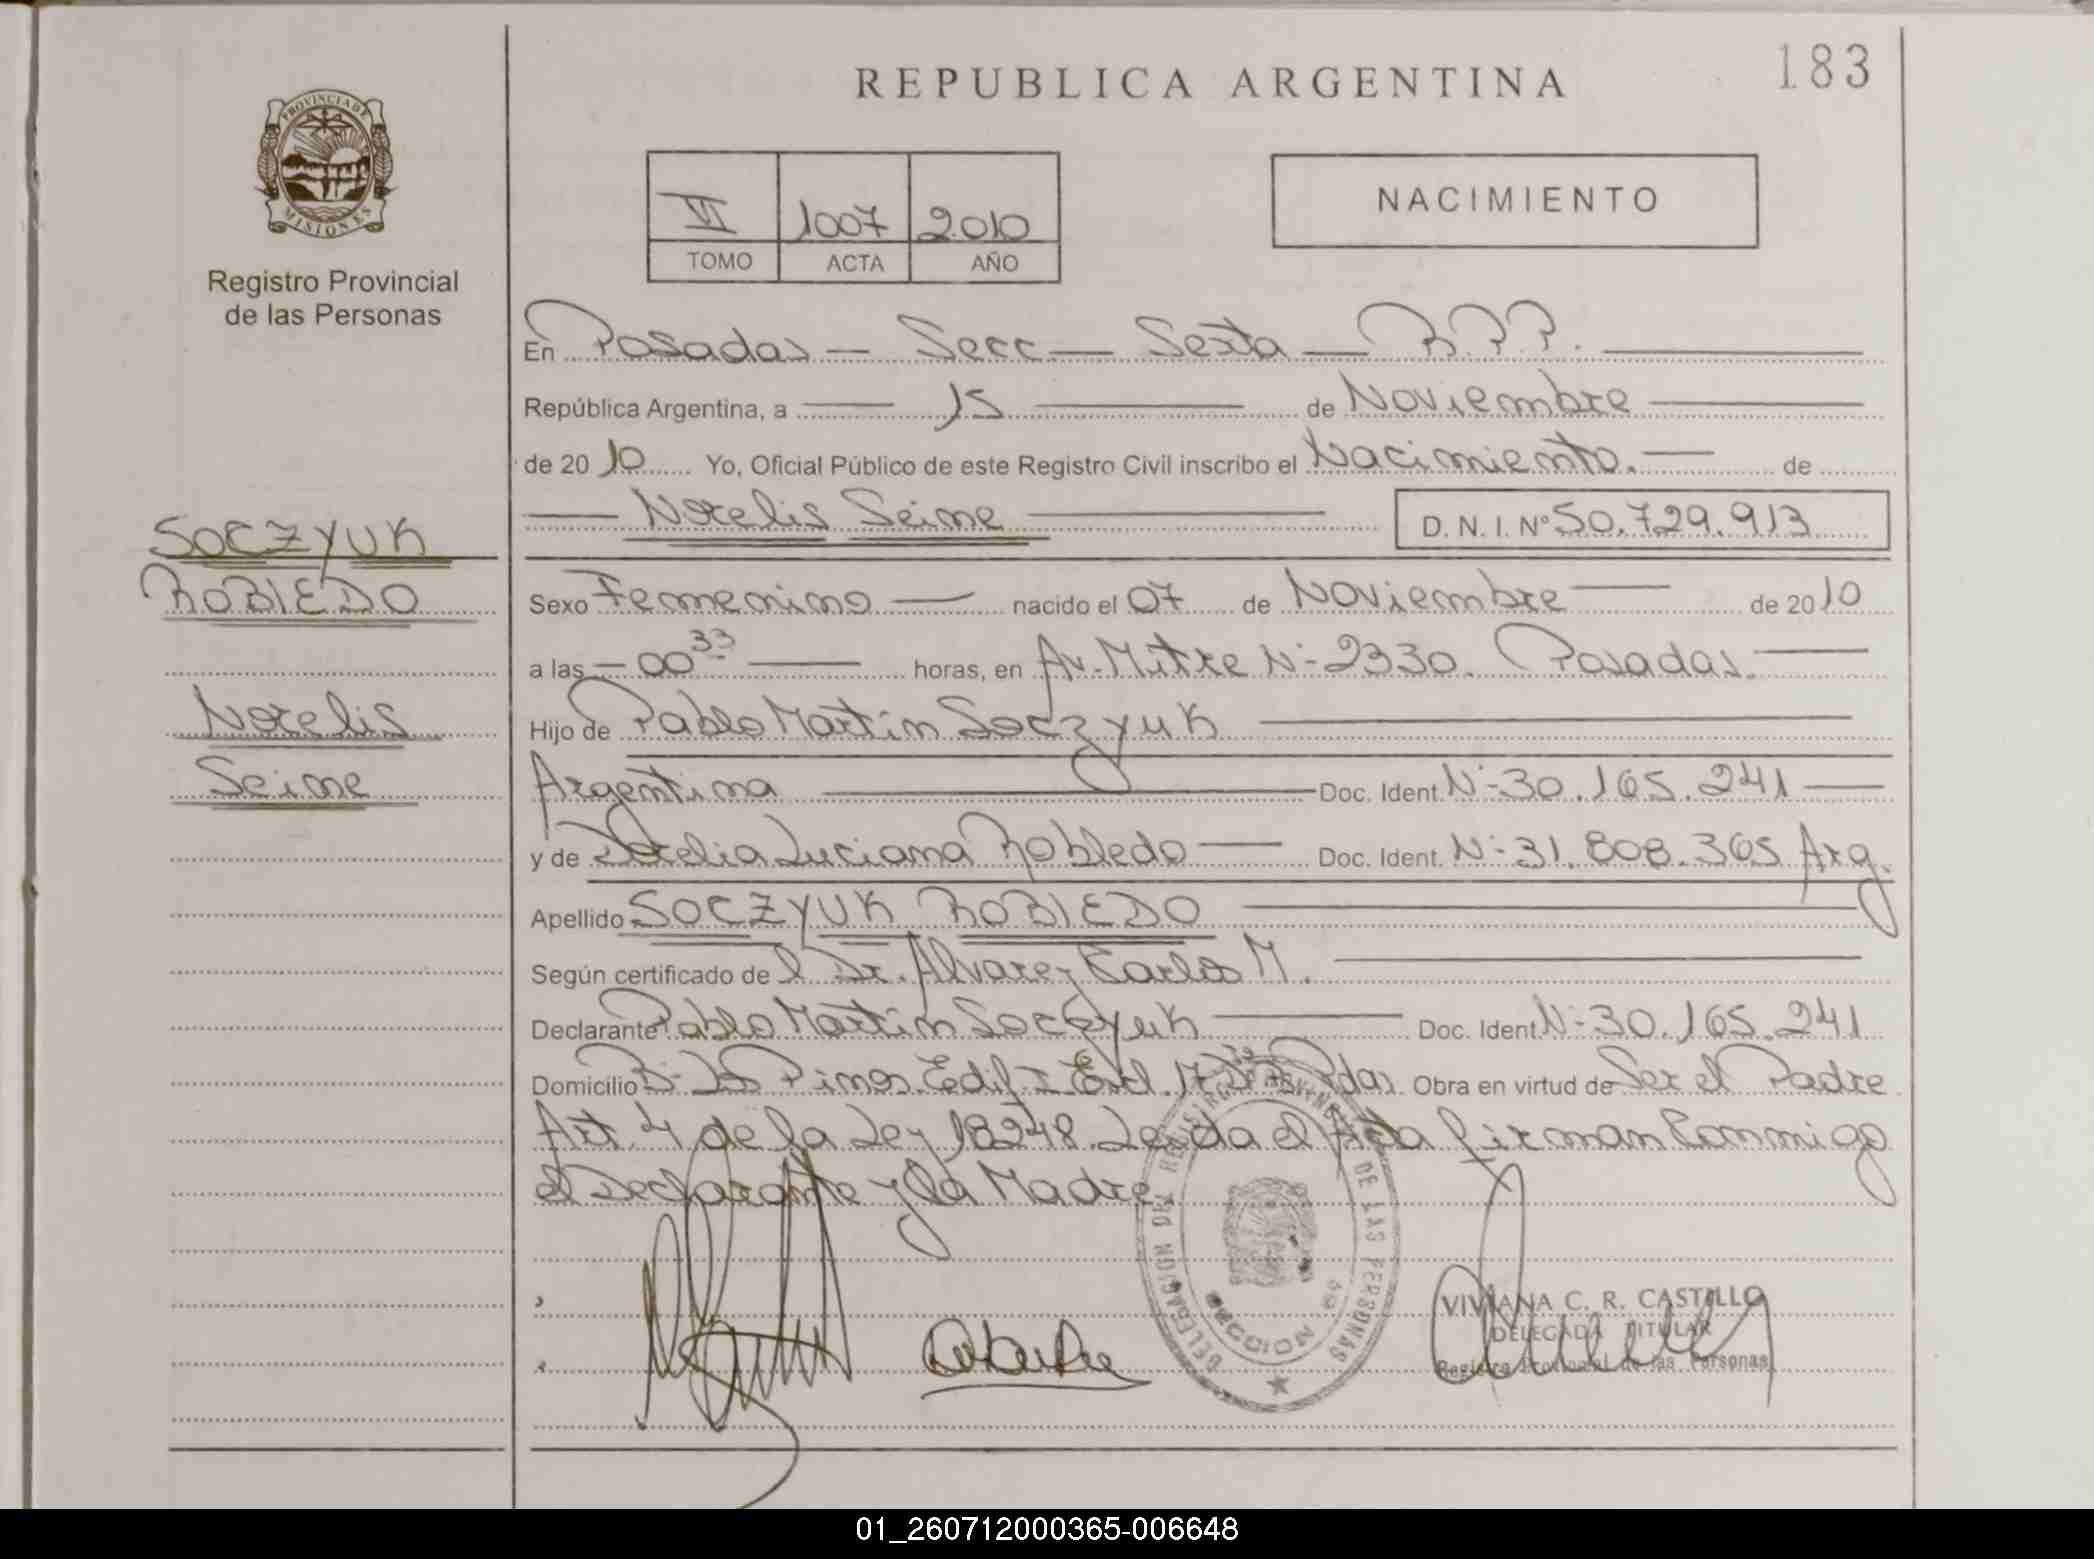 183
REPUBLICA ARGENTINA
PROVINCIA DE
MISIONES
Registro Provincial
de las Personas
VI 1007 2010
TOMO ACTA AÑO
NACIMIENTO
En Posadas — Secc — Sexta — R.P.P.
República Argentina, a — 15 — de Noviembre
de 20 10 Yo, Oficial Público de este Registro Civil inscribo el Nacimiento. — de
— Norelis Seime — D. N. I. Nº 50.729.913
SOCZYUK
ROBLEDO
Norelis
Seime
Sexo Femenino — nacido el 07 de Noviembre — de 20 10
a las — 00 33 — horas, en Av. Mitre Nº 2330. Posadas. —
Hijo de Pablo Martin Soczyuk —
Argentina — Doc. Ident. Nº 30.165.241 —
y de Norelia Luciana Robledo — Doc. Ident. Nº 31.808.365 Arg.
Apellido SOCZYUK ROBLEDO —
Según certificado de l Dr. Alvarez Carlos M. —
Declarante Pablo Martin Soczyuk — Doc. Ident. Nº 30.165.241
Domicilio Bº Los Pinos Edif. I Pdas. Obra en virtud de Ser el Padre
Art. 4 de la Ley 18248. Leida el Acta firman Conmigo
el Declarante y la Madre
DELEGACION DEL REGISTRO PROVINCIAL DE LAS PERSONAS
SECCION 6ª
VIVIANA C. R. CASTILLO
DELEGADA TITULAR
Registro Provincial de las Personas
01_260712000365-006648